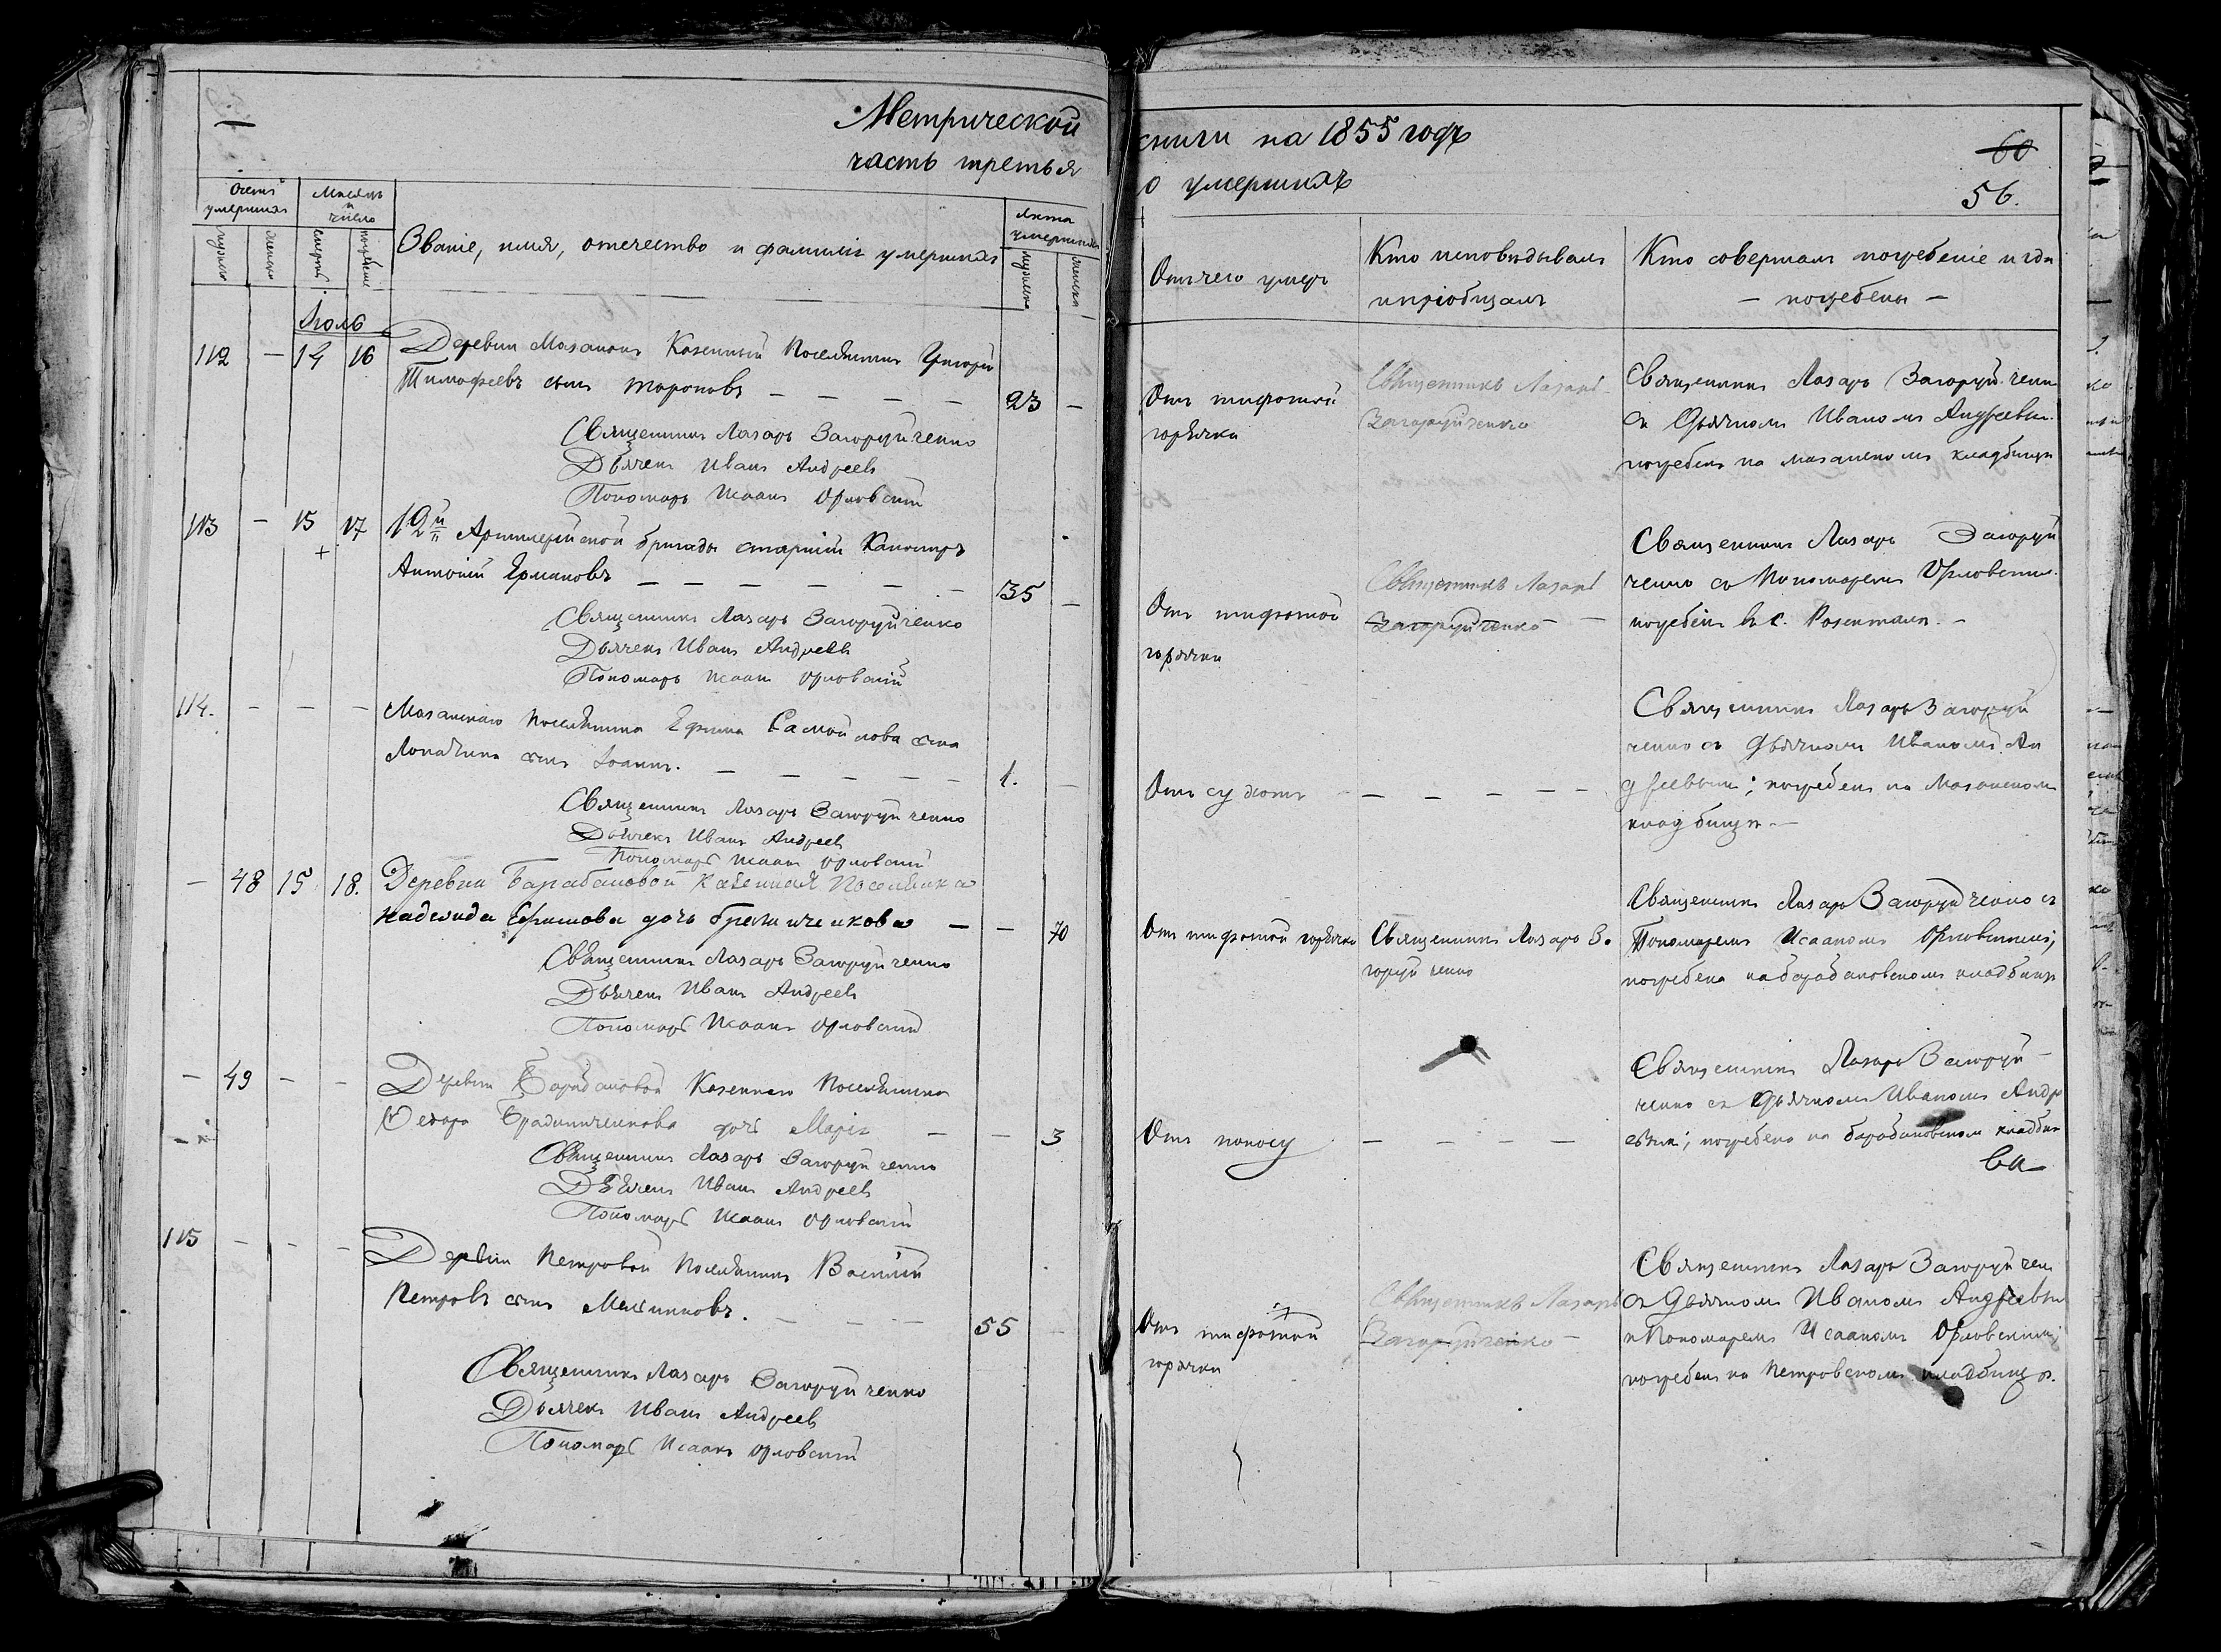 Метрической
часть третья
Счетъ умершихъ
Мѣсяцъ и число
Званіе, имя, отечество и фамилія умершихъ
Лѣта умершихъ
мужеска
женска
смерти
погребенія
мужеска
женска
Іюль
112 — 14 16 Деревни Мазанокъ Казенный Поселянинъ Григорій
Тимофеевъ сынъ Тороповъ — — — — 23 —
Священникъ Лазарь Загоруйченко
Дьячекъ Иванъ Андреевъ
Пономарь Исаакъ Орловскій
113 — 15 17 12й Артилерійской бригады старшій Канониръ
Антоній Ермаковъ — — — — — — 35 —
Священникъ Лазарь Загоруйченко
Дьячекъ Иванъ Андреевъ
Пономарь Исаакъ Орловскій
114. — — — Мазанскаго Поселянина Ефима Самойлова сына
сынъ Іоаннъ. — — — — — 1. —
Священникъ Лазарь Загоруйченко
Дьячекъ Иванъ Андреевъ
Пономарь Исаакъ Орловскій
— 48 15 18. Деревни Барабановой Казенная Поселянка
Надежда Ефимова дочь — — 70
Священникъ Лазарь Загоруйченко
Дьячекъ Иванъ Андреевъ
Пономарь Исаакъ Орловскій
— 49 — — Деревни Барабановой Казеннаго Поселянина
дочь Марія — — 3
Священникъ Лазарь Загоруйченко
Дьячекъ Иванъ Андреевъ
Пономарь Исаакъ Орловскій
115 — — — Деревни Петровой Поселянинъ Василій
Петровъ сынъ — — — 55
Священникъ Лазарь Загоруйченко
Дьячекъ Иванъ Андреевъ
Пономарь Исаакъ Орловскій
книги на 1855 годъ
60
о умершихъ
56.
Отъ чего умеръ
Кто исповѣдывалъ
и пріобщалъ
Кто совершалъ погребеніе и гдѣ
— погребены —
Отъ тифозной
горячки
Священникъ Лазарь
Загоруйченко
Священникъ Лазарь Загоруйченко
съ Дьячкомъ Иваномъ Андреевым.
погребенъ на мазанскомъ кладбищѣ
Отъ тифозной
горячки
Священникъ Лазарь
Загоруйченко —
Священникъ Лазарь Загоруй
ченко съ Пономаремъ Орловским.
погребенъ въ с. Розенталѣ. —
Отъ сухотъ — — — — —
Священникъ Лазарь Загоруй
ченко съ Дьячкомъ Иваномъ Ан
дреевымъ; погребенъ на Мазанскомъ
кладбищѣ. —
Отъ тифозной горячки
Священникъ Лазарь За
горуйченко
Священникъ Лазарь Загоруйченко съ
Пономаремъ Исаакомъ Орловскимъ;
погребена на барабановскомъ кладбищѣ
Отъ поносу — — — —
Священникъ Лазарь Загоруй
ченко съ Дьячкомъ Иваномъ Андре
евымъ; погребена на барабановскомъ кладби
Отъ тифозной
горячки
Священникъ Лазарь
Загоруйченко —
Священникъ Лазарь Загоруйчен
съ Дьячкомъ Иваномъ Андреевым
и Пономаремъ Исаакомъ Орловскимъ;
погребенъ на Петровскомъ кладбищѣ.